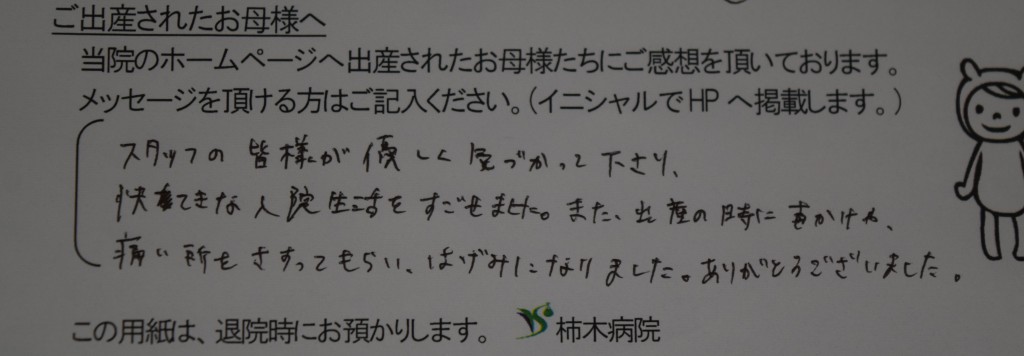 ご出産されたお母様へ
当院のホームページへ出産されたお母様たちにご感想を頂いております。
メッセージを頂ける方はご記入ください。(イニシャルでHPへ掲載します。)
スタッフの皆様が優しく気づかって下さり、
快適な入院生活をすごせました。また、出産の時に声かけや、
痛い所をさすってもらい、はげみになりました。ありがとうございました。
この用紙は、退院時にお預かりします。 柿木病院